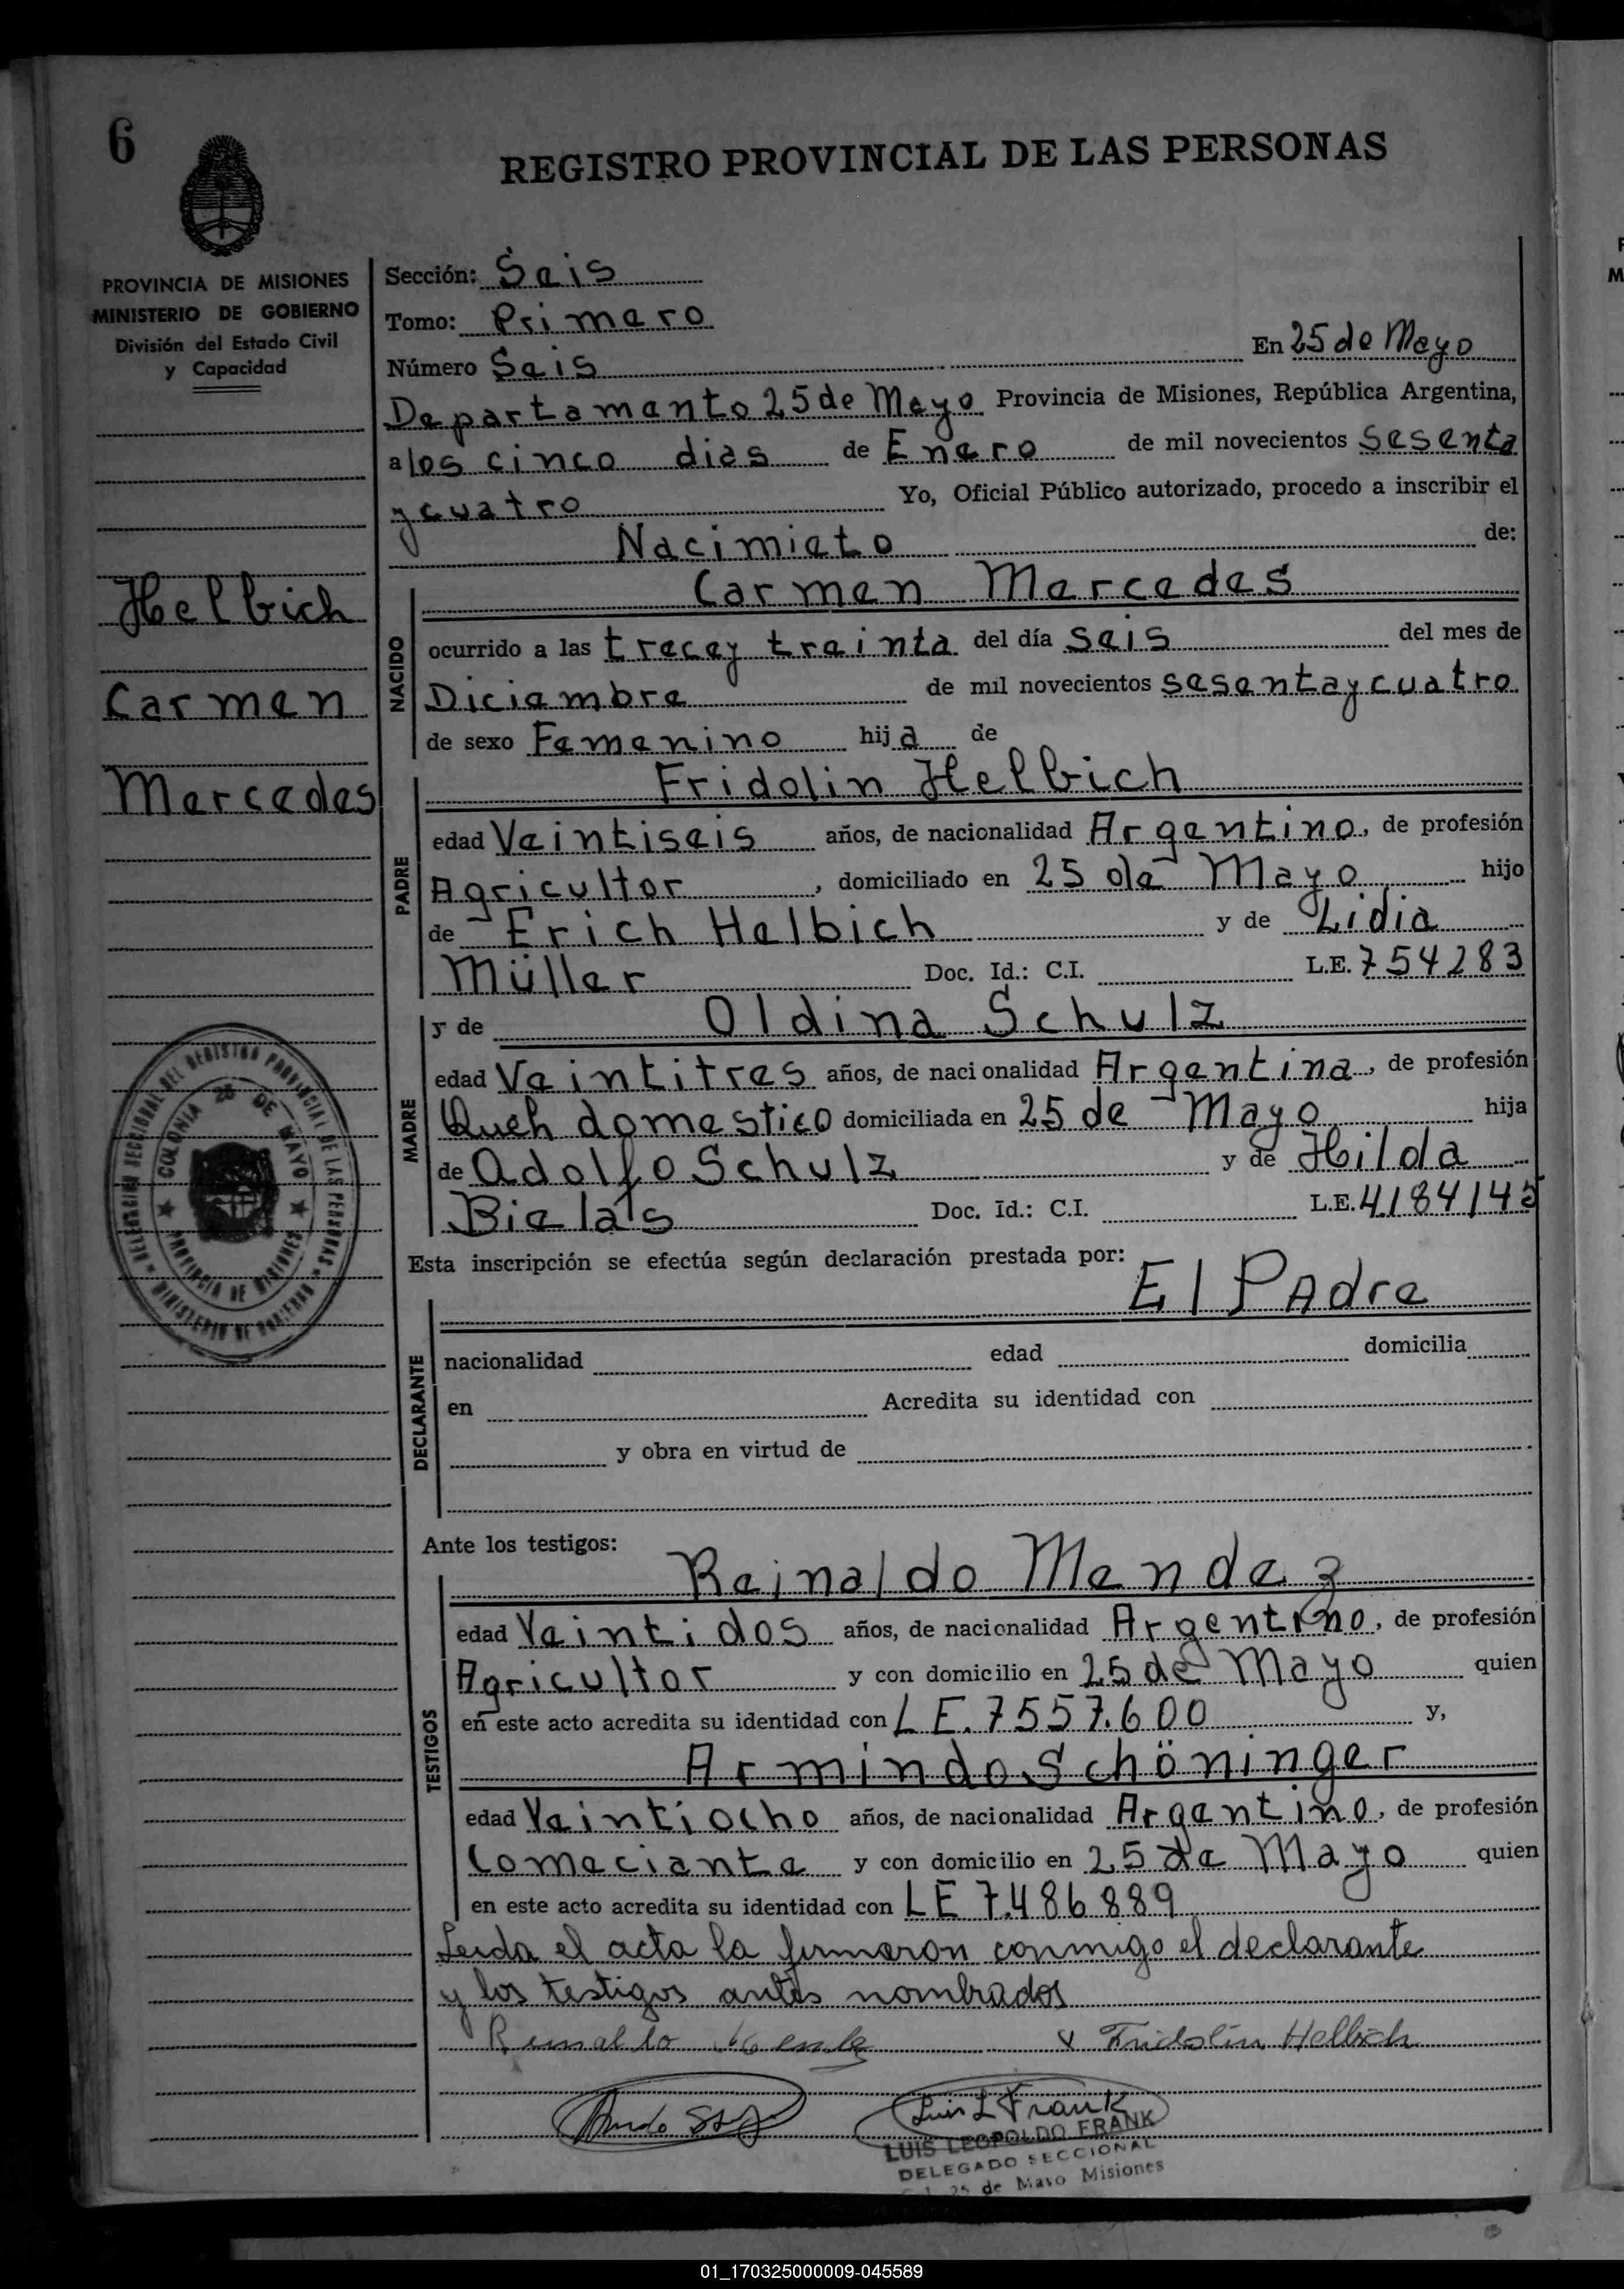 6
REGISTRO PROVINCIAL DE LAS PERSONAS
PROVINCIA DE MISIONES
MINISTERIO DE GOBIERNO
División del Estado Civil
y Capacidad
Sección: Seis
Tomo: Primero
Número Seis En 25 de Mayo
Departamento 25 de Mayo Provincia de Misiones, República Argentina,
a los cinco dias de Enero de mil novecientos sesenta
y cuatro Yo, Oficial Público autorizado, procedo a inscribir el
Nacimieto de:
Helbich
Carmen
Mercedes
NACIDO
Carmen Mercedes
ocurrido a las trece y treinta del día seis del mes de
Diciembre de mil novecientos sesenta y cuatro
de sexo Femenino hija de
PADRE
Fridolin Helbich
edad Veintiseis años, de nacionalidad Argentino, de profesión
Agricultor, domiciliado en 25 de Mayo hijo
de Erich Helbich y de Lidia
Müller Doc. Id.: C.I. L.E. 754283
MADRE
y de Oldina Schulz
edad Veintitres años, de nacionalidad Argentina, de profesión
Queh domestico domiciliada en 25 de Mayo hija
de Adolfo Schulz y de Hilda
Bielas Doc. Id.: C.I. L.E. 4.184.145
DELEGACION SECCIONAL DEL REGISTRO PROVINCIAL DE LAS PERSONAS
MINISTERIO DE GOBIERNO
COLONIA 25 DE MAYO
PROVINCIA DE MISIONES
Esta inscripción se efectúa según declaración prestada por:
El PAdre
DECLARANTE
nacionalidad edad domicilia
en Acredita su identidad con
y obra en virtud de
Ante los testigos:
TESTIGOS
Reinaldo Mendez
edad Veintidos años, de nacionalidad Argentino, de profesión
Agricultor y con domicilio en 25 de Mayo quien
en este acto acredita su identidad con LE. 7557.600 y,
Armindo Schöninger
edad Veintiocho años, de nacionalidad Argentino, de profesión
Comeciante y con domicilio en 25 de Mayo quien
en este acto acredita su identidad con LE 7.486889
Leida el acta la firmaron conmigo el declarante
y los testigos antes nombrados
Fridolin Helbich
Luis L Frank
LUIS LEOPOLDO FRANK
DELEGADO SECCIONAL
25 de Mayo Misiones
01_170325000009-045589